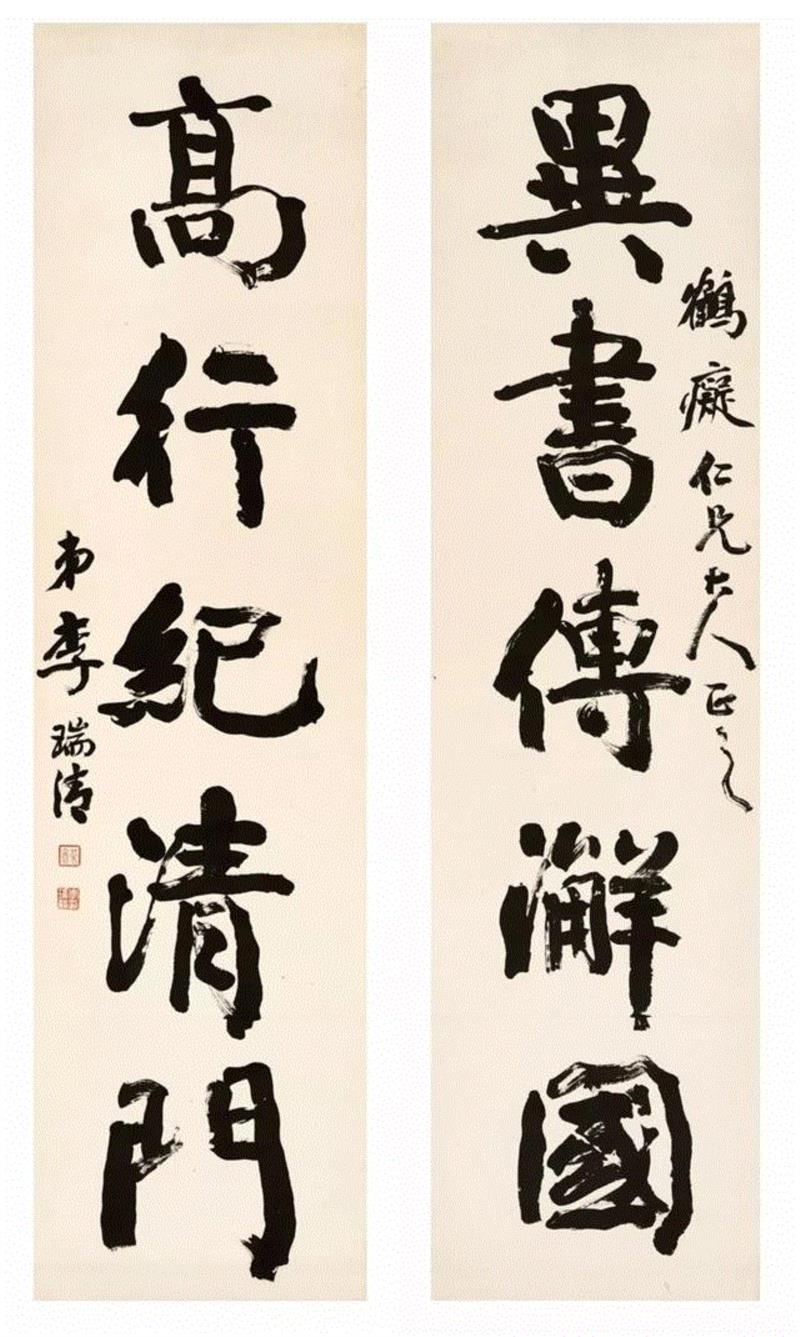 鶴癡仁兄大人正之
異書傳澥國
高行紀清門
弟李瑞清